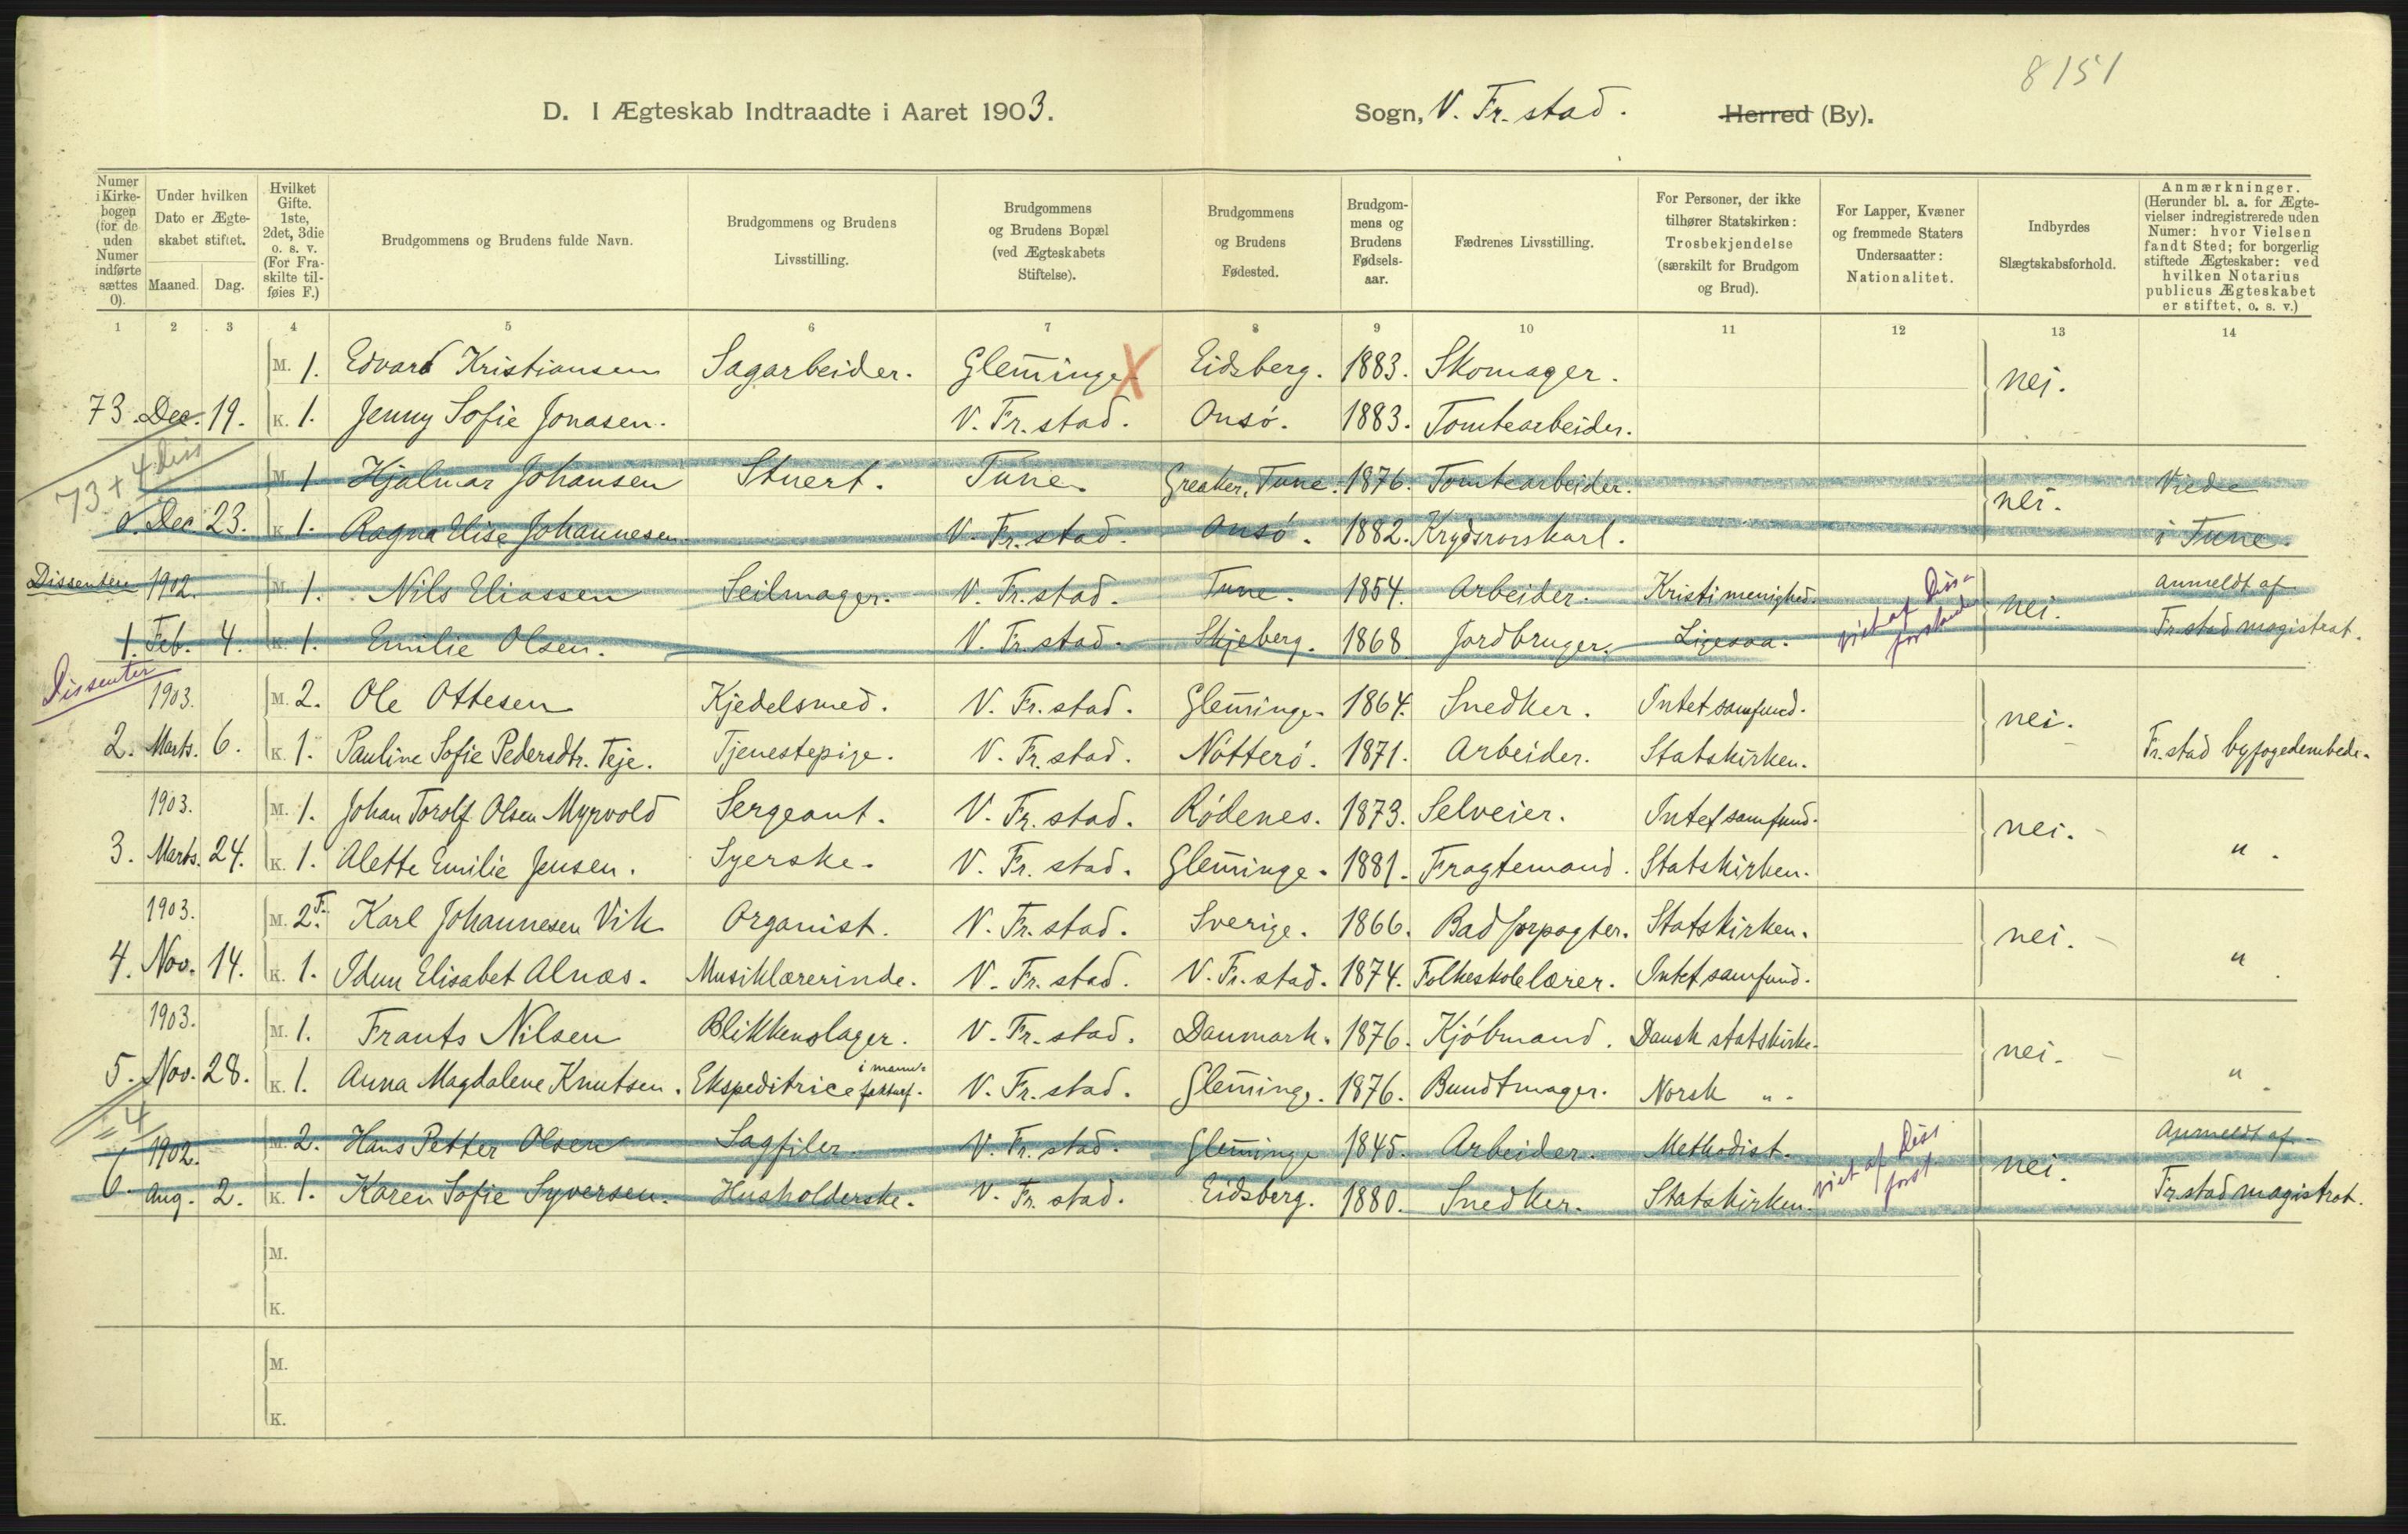 8151
D. I Ægteskab Indtraadte i Aaret 1903. Sogn, V. Fr. stad. Herred (By).
Numer i Kirke-bogen (for de uden Numer indførte sættes 0). Under hvilken Dato er Ægte-skabet stiftet. Maaned. Dag. Hvilket Gifte. 1ste, 2det, 3die o. s. v. (For Fra-skilte til-føies F.) Brudgommens og Brudens fulde Navn. Brudgommens og Brudens Livsstilling. Brudgommens og Brudens Bopæl (ved Ægteskabets Stiftelse). Brudgommens og Brudens Fødested. Brudgom-mens og Brudens Fødsels-aar. Fædrenes Livsstilling. For Personer, der ikke tilhører Statskirken: Trosbekjendelse (særskilt for Brudgom og Brud). For Lapper, Kvæner og fremmede Staters Undersaatter: Nationalitet. Indbyrdes Slægtskabsforhold. Anmærkninger. (Herunder bl. a. for Ægte-vielser indregistrerede uden Numer: hvor Vielsen fandt Sted; for borgerlig stiftede Ægteskaber: ved hvilken Notarius publicus Ægteskabet er stiftet, o. s. v.)
1 2 3 4 5 6 7 8 9 10 11 12 13 14
M. 1. Edvard Kristiansen Sagarbeider. Glem̄inge X Eidsberg. 1883. Skomager. nei.
73. Dec. 19. K. 1. Jenny Sofie Jonasen. V. Fr. stad. Onsö. 1883. Tomtearbeider.
73 + 4 diss
M. 1 Hjalmar Johansen Stuert. Tune. Greaker, Tune. 1876. Tomtearbeider. nei. Viede
0. Dec. 23. K. 1. Ragna Elise Johannesen. V. Fr. stad. Onsö. 1882. Krydsrorskarl. i Tune.
Dissentere 1902. M. 1. Nils Eliassen Seilmager. V. Fr. stad. Tune. 1854. Arbeider. Kristi menighed. viet af Diss-forstander nei. Anmeldt af
1. Feb. 4. K. 1. Emilie Olsen. V. Fr. stad. Skjeberg. 1868 Jordbruger. Ligesaa. Fr stad magistrat.
Dissenter
1903. M. 2. Ole Ottesen Kjedelsmed. V. Fr. stad. Glem̄inge. 1864. Snedker. Intet samfund. nei.
2. Marts. 6. K. 1. Pauline Sofie Pedersdtr. Teje. Tjenestepige. V. Fr. stad. Nötterö. 1871. Arbeider. Statskirken. Fr. stad byfogedembede.
1903. M. 1. Johan Torolf Olsen Myrvold Sergeant. V. Fr. stad. Rödenes. 1873. Selveier. Intet samfund. nei.
3. Marts. 24. K. 1. Alette Emilie Jensen. Syerske. V. Fr. stad. Glem̄inge. 1881. Fragtemand. Statskirken. "
1903. M. 2. F. Karl Johannesen Vik Organist. V. Fr. stad. Sverige. 1866. Badforpagter. Statskirken. nei.
4. Nov. 14. K. 1. Idun Elisabet Alnæs. Musiklærerinde. V. Fr. stad. V. Fr. stad. 1874. Folkeskolelærer. Intet samfund. "
1903. M. 1. Frants Nilsen Blikkenslager. V. Fr. stad. Danmark. 1876. Kjöbmand. Dansk statskirke. nei.
5. Nov. 28. K. 1. Anna Magdalene Knutsen. Ekspeditrice i manufakturf. V. Fr. stad. Glem̄inge. 1876. Bundtmager. Norsk " "
= 4
1902. M. 2. Hans Petter Olsen Sagfiler. V. Fr. stad. Glem̄inge 1845. Arbeider. Methodist. viet af Diss forst. nei. Anmeldt af
6. Aug. 2. K. 1. Karen Sofie Syversen. Husholderske. V. Fr. stad. Eidsberg. 1880. Snedker. Statskirken. Fr. stad magistrat.
M.
K.
M.
K.